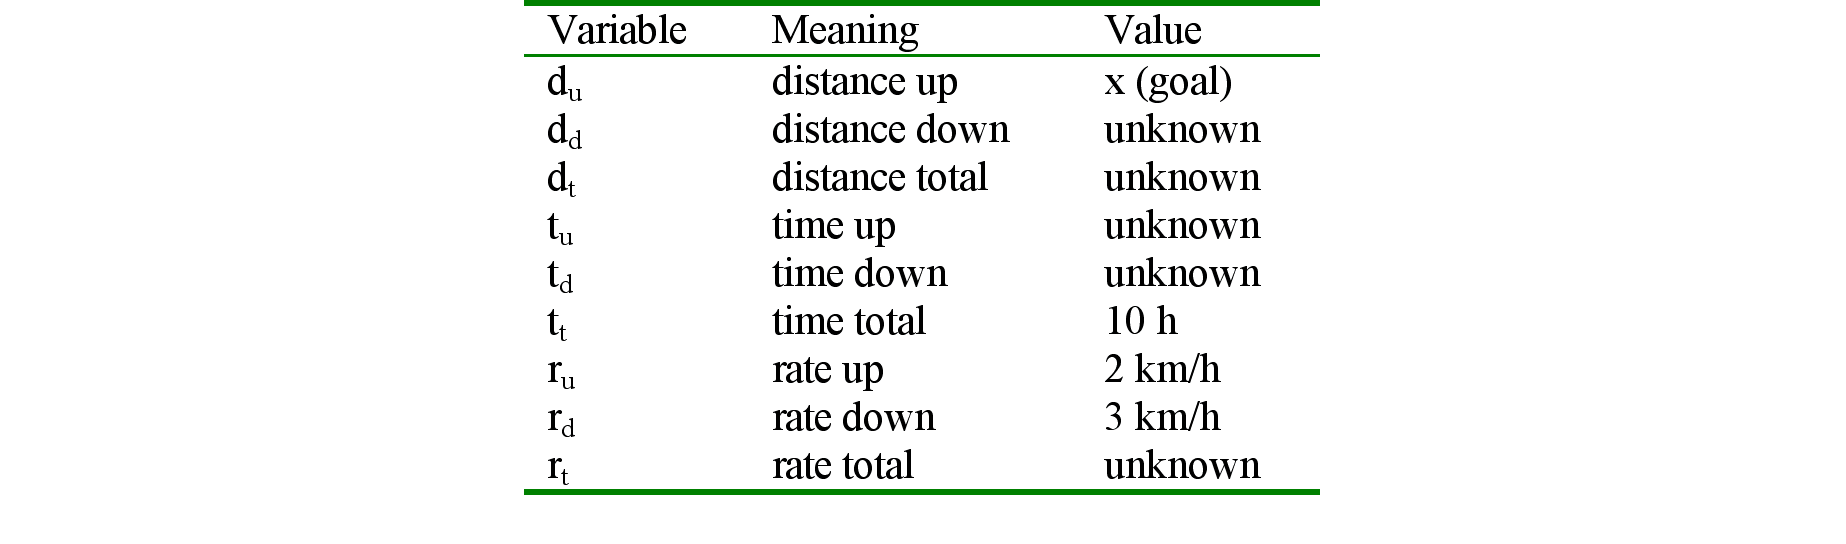 Variable Meaning Value
d_u distance up x (goal)
d_d distance down unknown
d_t distance total unknown
t_u time up unknown
t_d time down unknown
t_t time total 10 h
r_u rate up 2 km/h
r_d rate down 3 km/h
r_t rate total unknown